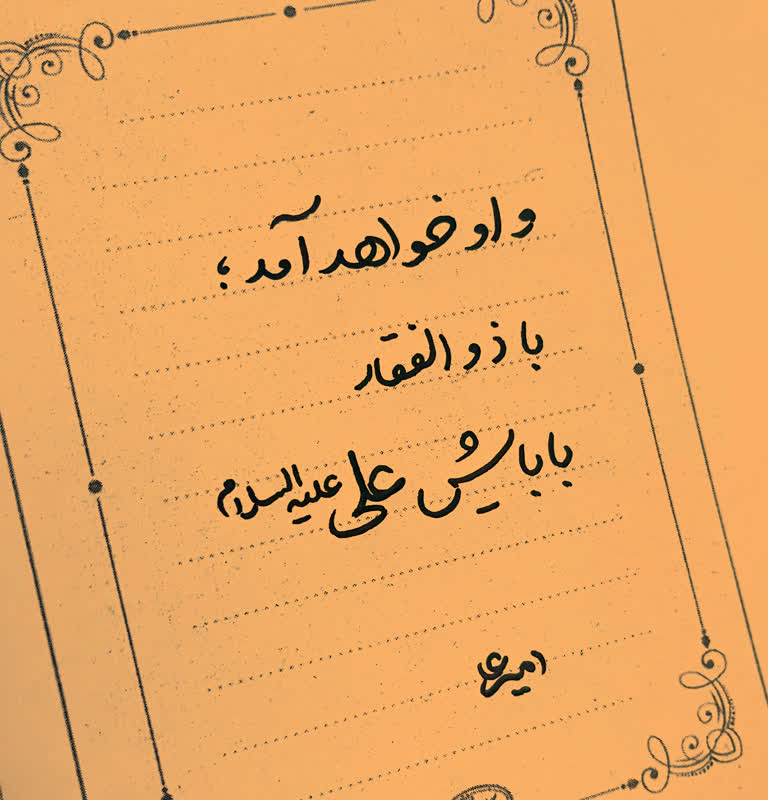 و او خواهد آمد؛
با ذوالفقار
بابایش علی علیه السلام